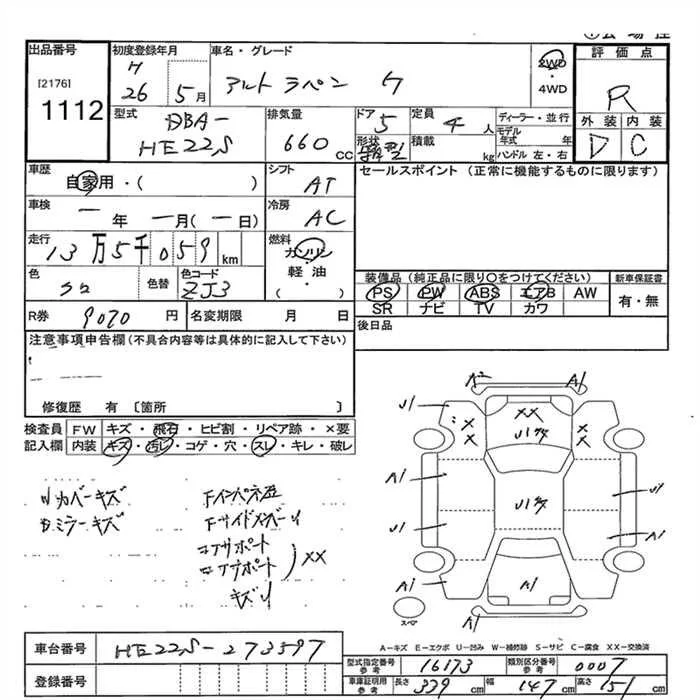 出品番号 初度登録年月 車名・グレード 評価点
[2176]
1112
H 26 年 5月 アルト ラペン 2WD・4WD R
型式 DBA- HE22S 排気量 660 CC ドア 5 定員 4 人 ディーラー・並行
形状 積載 kg モデル年式 年 ハンドル 左・右
外装 内装
D C
車歴 自家用・( ) シフト AT セールスポイント (正常に機能するものに限ります)
車検 一 年 一月(一日) 冷房 AC
走行 13万5千059 km 燃料 ガソリン 軽・油 ( )
色 クロ 色替 色コード ZJ3
装備品 (純正品に限り○をつけてください) 新車保証書
PS PW ABS エアB AW 有・無
SR ナビ TV カワ
R券 9070 円 名変期限 月 日 後日品
注意事項申告欄(不具合内容等は具体的に記入して下さい)
修復歴 有 〔箇所 〕
検査員 FW キズ・飛石・ヒビ割・リペア跡・×要
記入欄 内装 キズ・汚レ・コゲ・穴・スレ・キレ・破レ
カバーキズ
ミラーキズ
Fインパネ歪
Fサイドメンバー
コアサポート
コアサポート
XX
A2 A1
U1 XX X X X X
A1 U1
U1 A1
A1 A1 A1
A1
スペア
A-キズ E-エクボ U-凹み W-補修跡 S-サビ C-腐食 XX-交換済
車台番号 HE22S-273597
登録番号
型式指定番号 参考 16173 類別区分番号 参考 0007
車庫証明用 参考 長さ 339 cm 幅 147 cm 高さ 151 cm